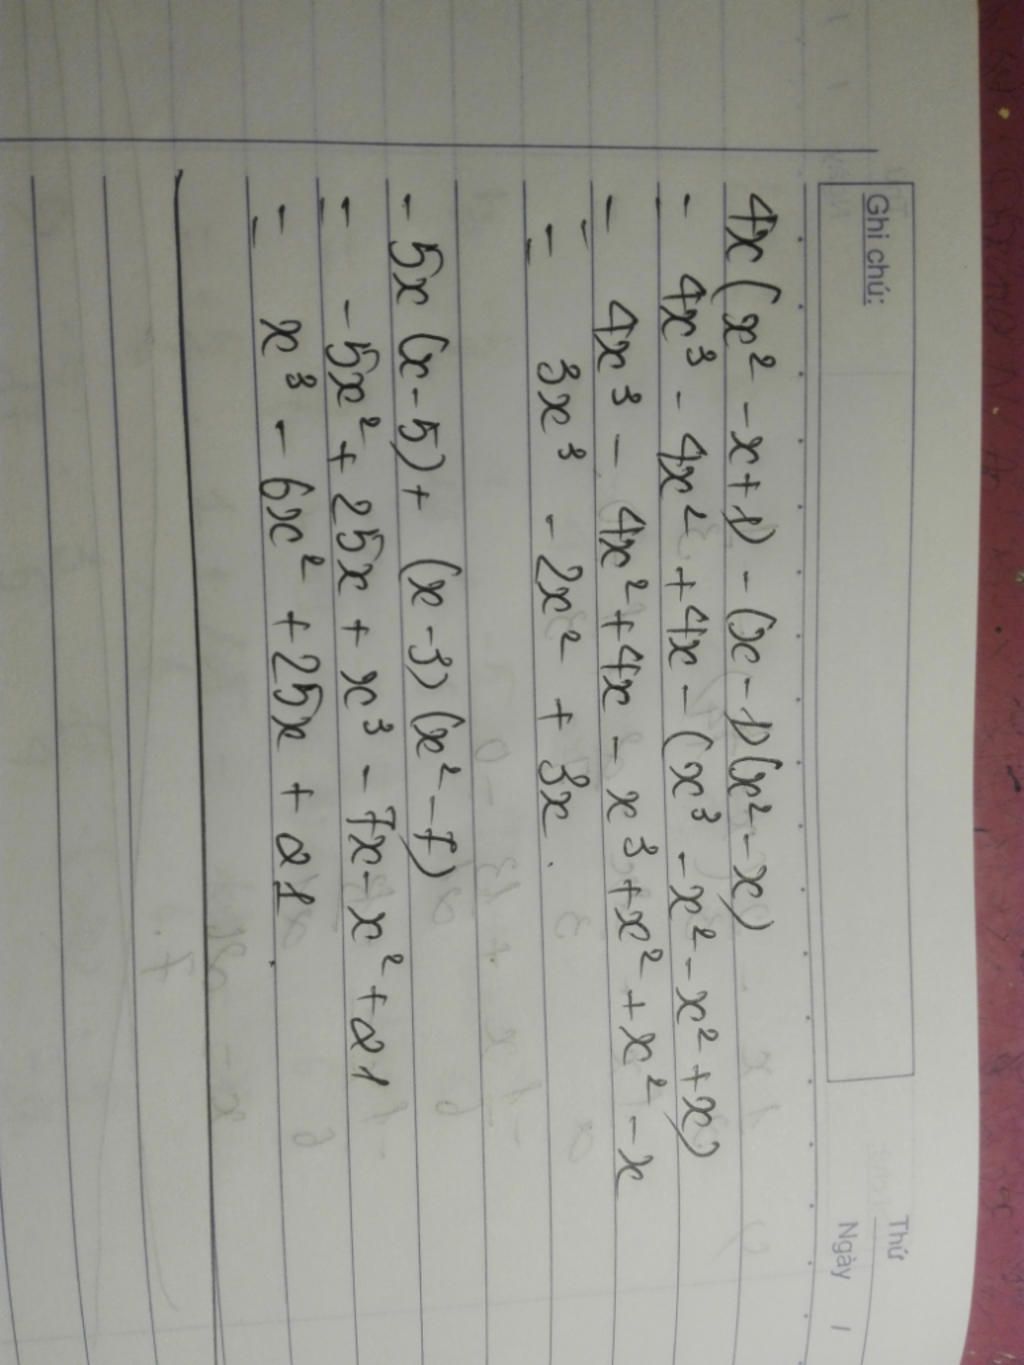 Ghi chú:
Thứ
Ngày
4x(x² - x + 1) - (x - 1)(x² - x)
= 4x³ - 4x² + 4x - (x³ - x² - x² + x)
= 4x³ - 4x² + 4x - x³ + x² + x² - x
= 3x³ - 2x² + 3x.
- 5x (x - 5) + (x - 3) (x² - 7)
= - 5x² + 25x + x³ - 7x - x² + 21
= x³ - 6x² + 25x + 21